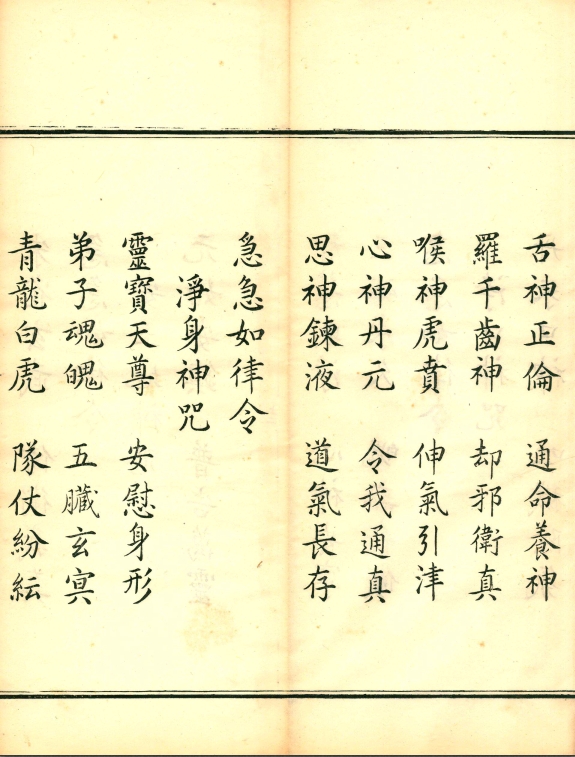 舌神正倫　通命養神
羅千齒神　却邪衛真
喉神虎賁　伸氣引津
心神丹元　令我通真
思神鍊液　道氣長存
急急如律令
淨身神咒
靈寶天尊　安慰身形
弟子魂魄　五臟玄冥
青龍白虎　隊仗紛紜